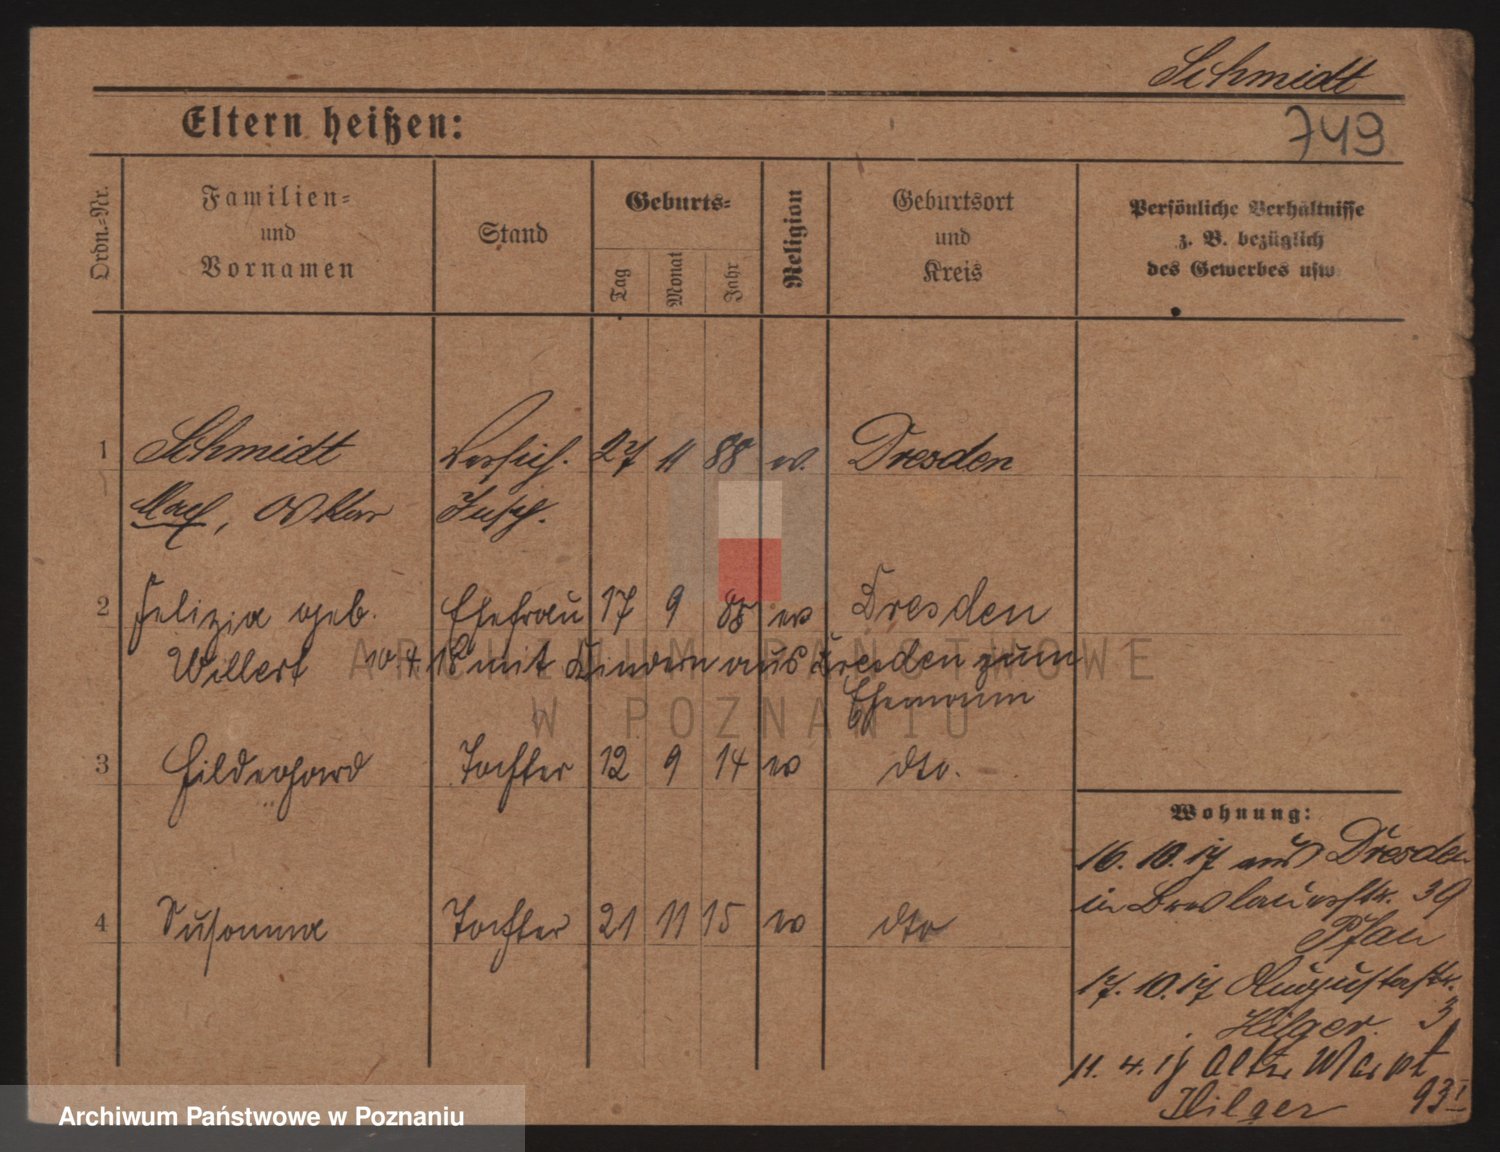 Schmidt
Eltern heißen:
749
Ordn.-Nr.
Familien-
und
Vornamen
Stand
Geburts-
Tag
Monat
Jahr
Religion
Geburtsort
und
Kreis
Persönliche Verhältnisse
z. B. bezüglich
des Gewerbes usw.
1 Schmidt Versich. 27 11 88 ev. Dresden
Max, Oskar Insp.
2 Felizia geb. Ehefrau 17 9 88 ev Dresden
Willert 10.4.18 mit Kindern aus Dresden zum
Ehemann
3 Hildegard Tochter 12 9 14 ev dto.
4 Susanna Tochter 21 11 15 ev dto
Wohnung:
16. 10. 17 aus Dresden
in Breslauerstr. 39
Pfau
17. 10. 17 Augustastr.
Hilger. 3
11. 4. 18 Alter Markt
Hilger 93 I
ARCHIWUM PAŃSTWOWE
W POZNANIU
Archiwum Państwowe w Poznaniu